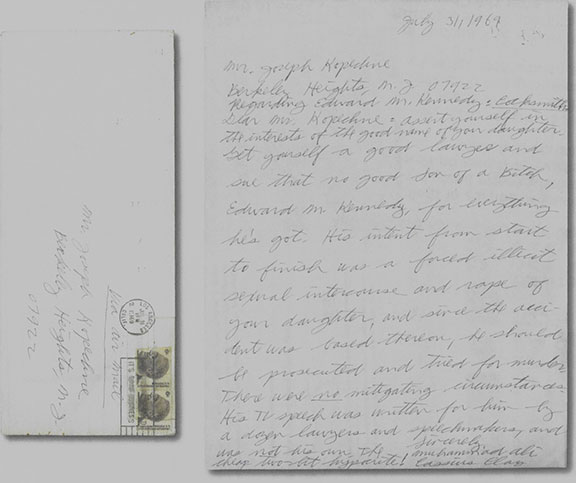 July 31, 1969
Mr. Joseph Kopechne
Berkeley Heights, N.J. 07922
Regarding Edward M. Kennedy:
Dear Mr. Kopechne: assert yourself in
the interests of the good name of your daughter.
Get yourself a good lawyer and
sue that no good Son of a Bitch,
Edward M. Kennedy, for everything
he's got. His intent from start
to finish was a forced illicit
sexual intercourse and rape of
your daughter, and since the acci-
dent was based thereon, he should
be prosecuted and tried for murder.
There were no mitigating circumstances.
His TV speech was written for him by
a dozen lawyers and speechmakers, and
was not his own. The
cheap two-bit hypocrite!
Sincerely
Muhammad Ali
Cassius Clay
Mr. Joseph Kopechne
Berkeley Heights, N.J.
07922
Via air mail